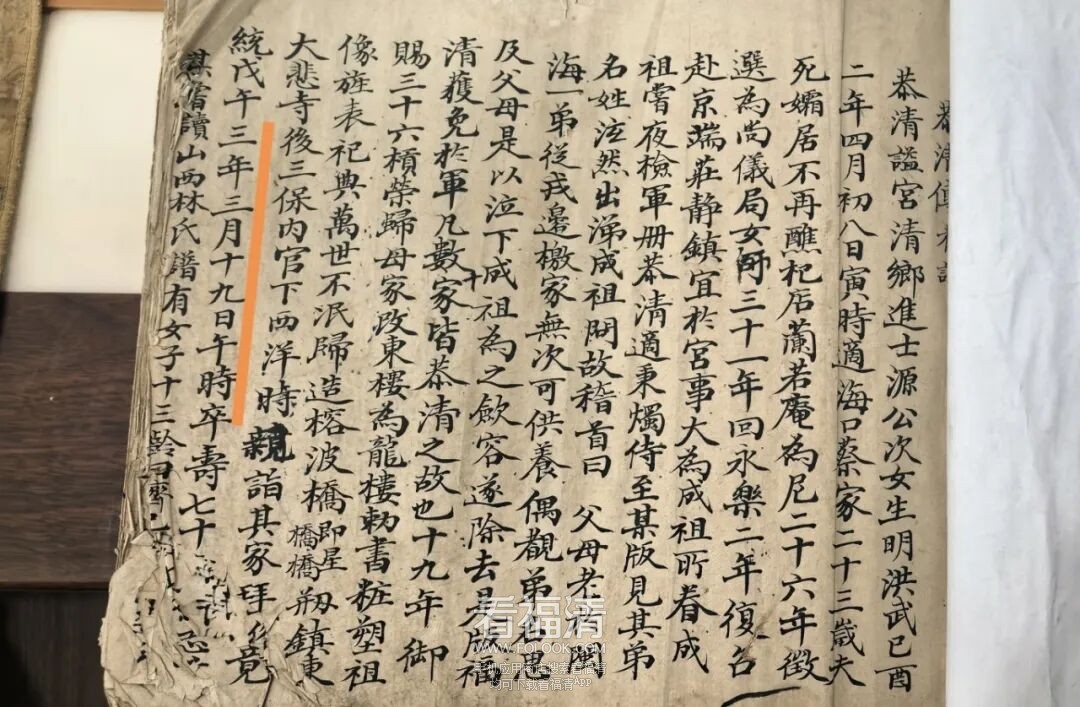 恭清傳
恭清謚宮清鄉進士源公次女生明洪武己酉
二年四月初八日寅時適海口蔡家二十三歲夫
死孀居不再醮杞店蘭若庵為尼二十六年徵
選為尚儀局女師三十一年回永樂二年復召
赴京端莊靜鎮宜於宮事大為成祖所眷成
祖嘗夜檢軍冊恭清適秉燭侍至某版見其弟
名姓泫然出涕成祖問故稽首曰 父母老於
海一弟從戎邊檄家無次可供養偶觀弟名思
及父母是以泣下成祖為之歛容遂除去是版福
清獲免於軍凡數十家皆恭清之故也十九年御
賜三十六槓榮歸母家改東樓為龍樓勅書粧塑祖
像旌表祀典萬世不泯歸造榕波橋即星橋橋剏鎮東
大悲寺後三保內官下西洋時親詣其家拜 竟
統戊午三年三月十九日午時卒壽七十
嘗讀山西林氏譜有女子十三齡
看福清
WWW.FQLOOK.COM
手机应用商店搜索看福清
均可下载看福清APP